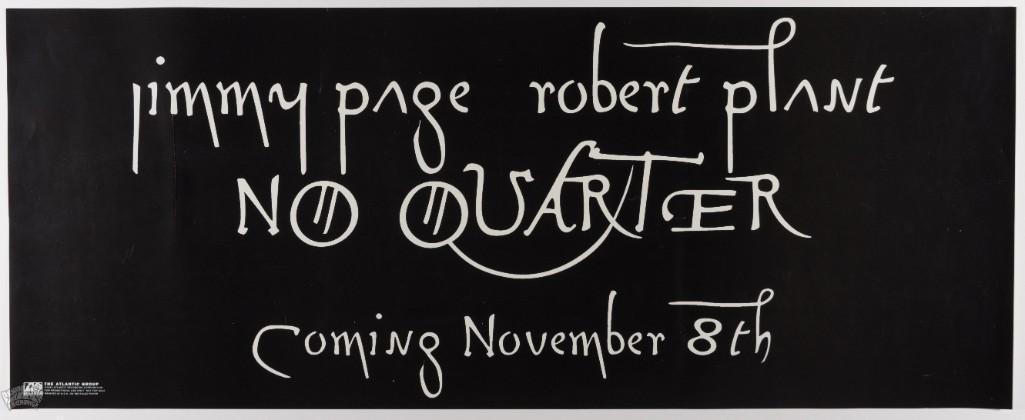 jimmy page robert plant
NO QUARTER
Coming November 8th
THE ATLANTIC GROUP